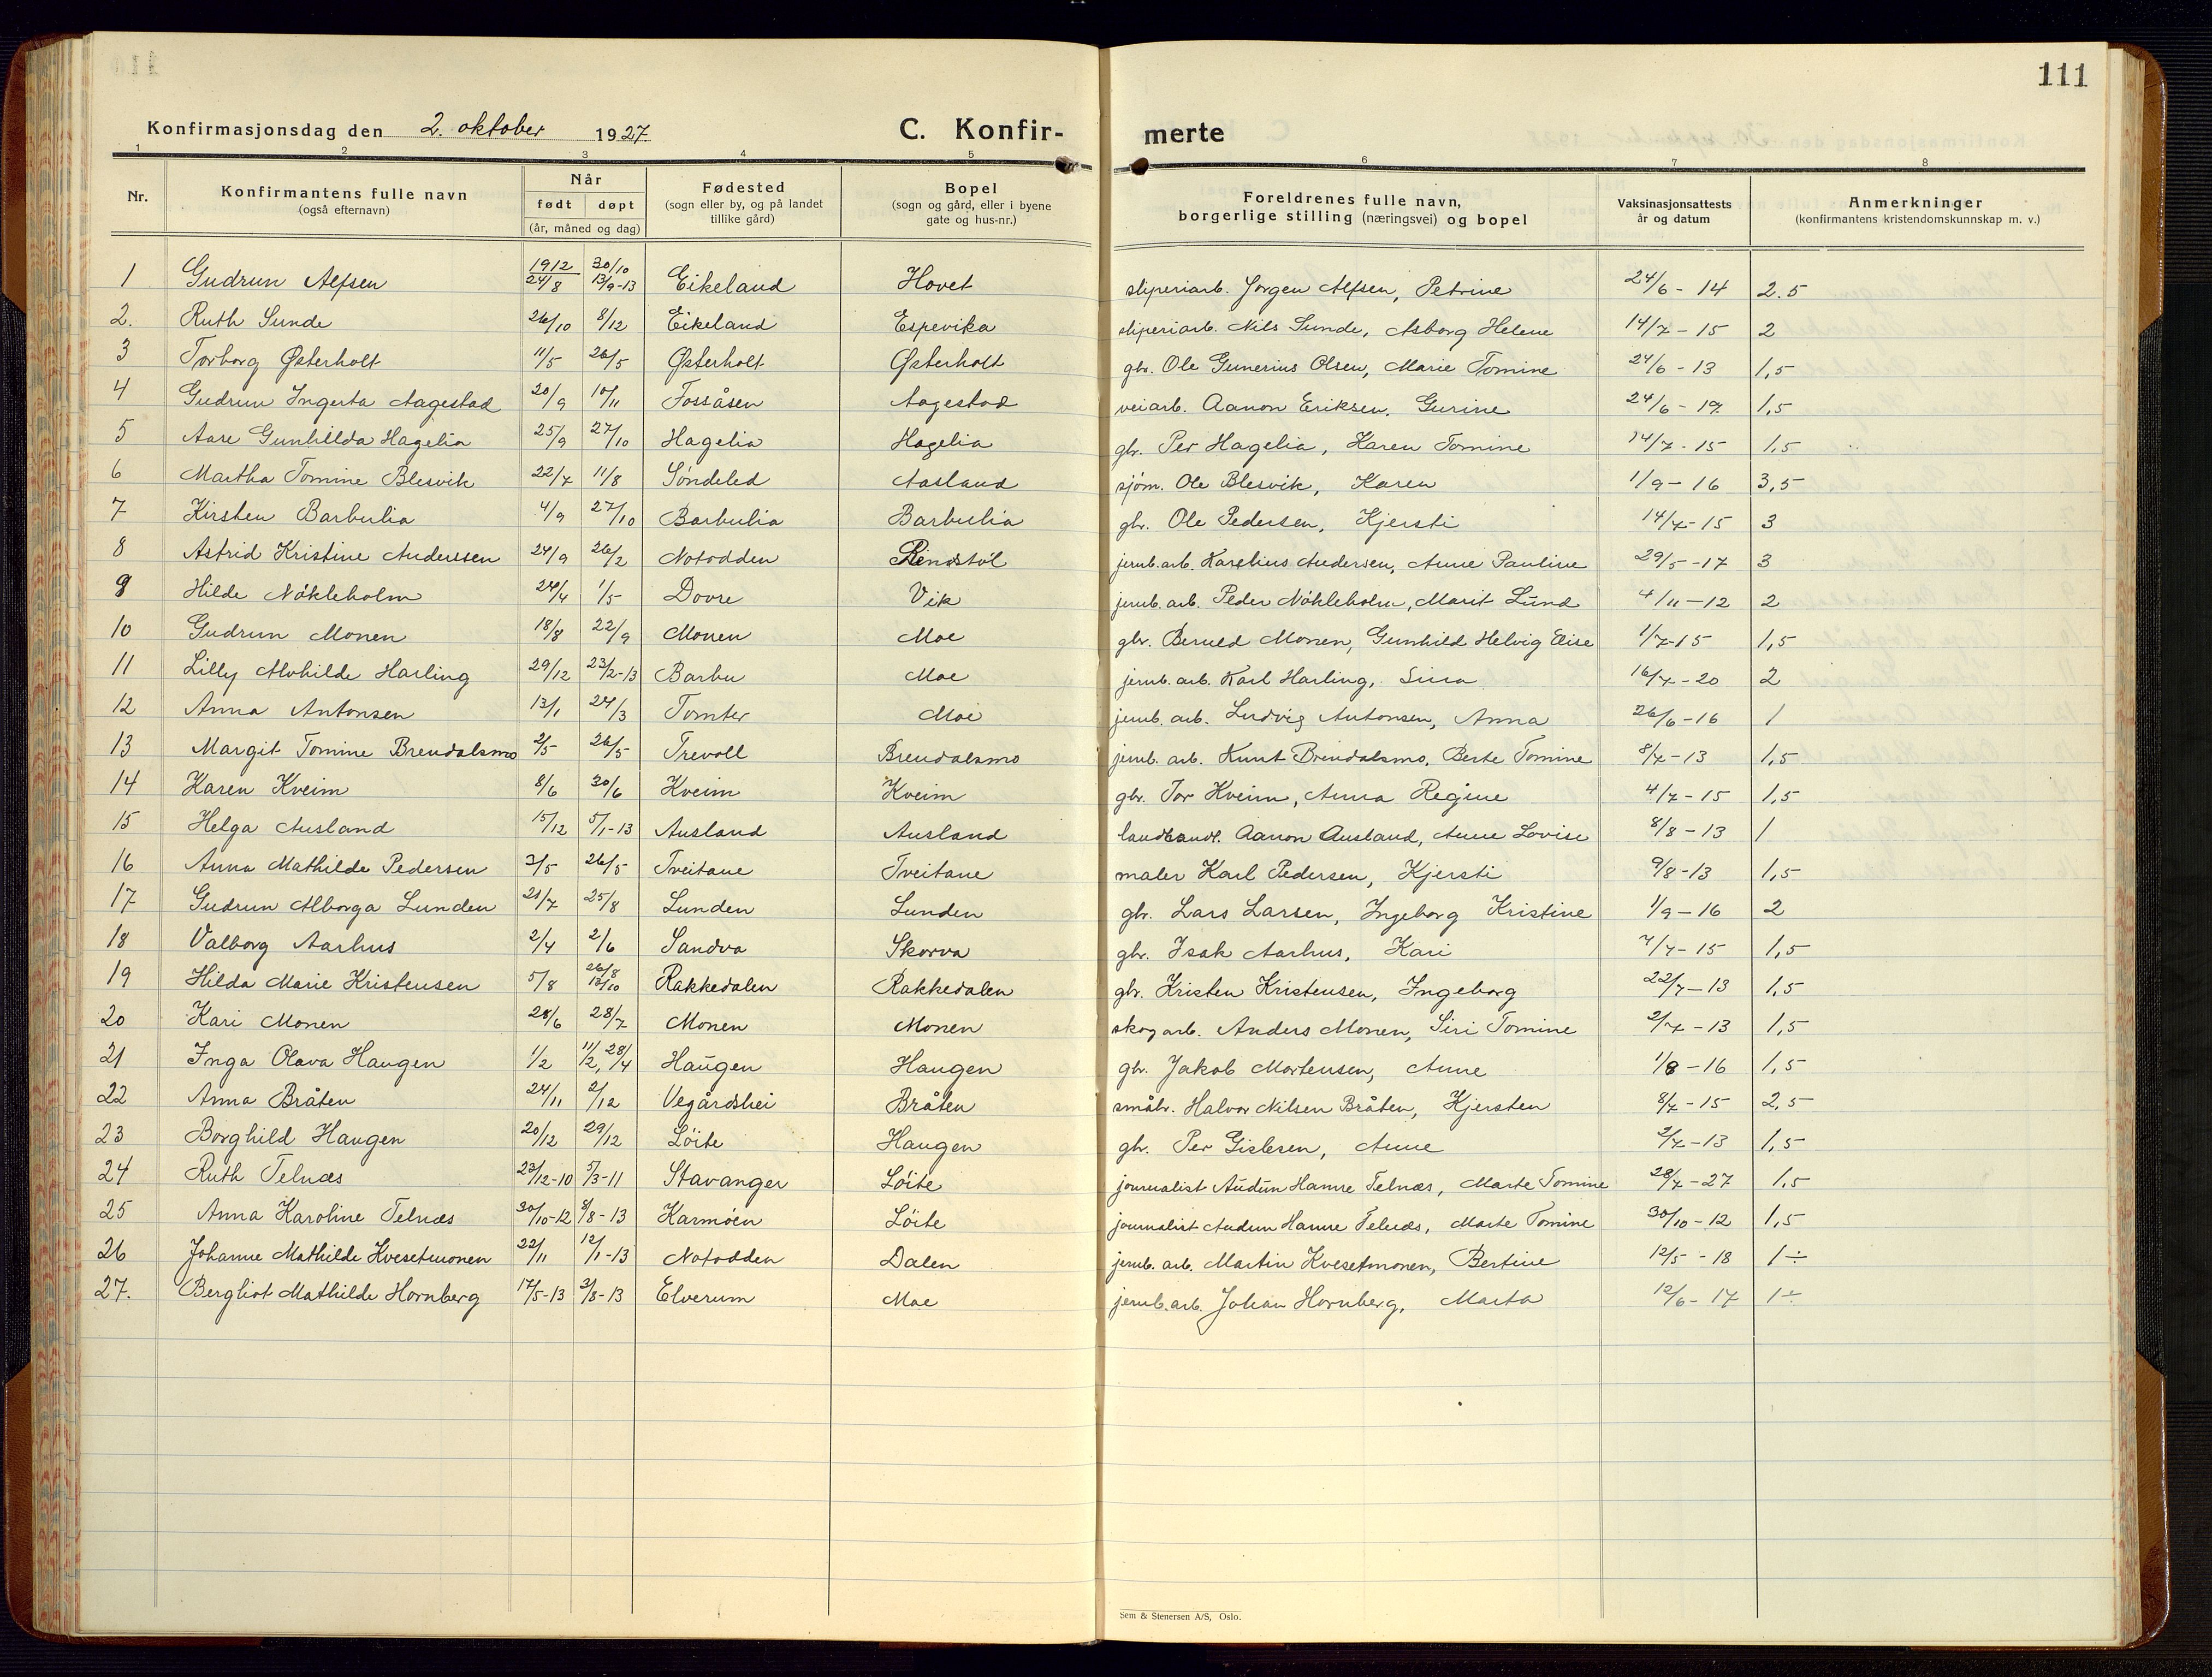 111
Konfirmasjonsdag den 2. oktober 1927. C. Konfir- merte
1 2 3 4 5 6 7 8
Nr. Konfirmantens fulle navn (også efternavn) Når født døpt (år, måned og dag) Fødested (sogn eller by, og på landet tillike gård) Bopel (sogn og gård, eller i byene gate og hus-nr.) Foreldrenes fulle navn, borgerlige stilling (næringsvei) og bopel Vaksinasjonsattests år og datum Anmerkninger (konfirmantens kristendomskunnskap m. v.)
1 Gudrun Alfsen 1912 24/8 30/10 13/9-13 Eikeland Hovet sliperiarb. Jørgen Alfsen, Petrine 24/6 - 14 2.5
2. Ruth Sunde 26/10 8/12 Eikeland Espevika sliperiarb. Nils Sunde, Asborg Helene 14/7 - 15 2
3 Torborg Østerholt 11/5 26/5 Østerholt Østerholt gbr. Ole Gunerius Olsen, Marie Tomine 24/6 - 13 1,5
4 Gudrun Ingerta Aagestad 20/9 10/11 Fossåsen Aagestad veiarb. Aanon Eriksen, Gurine 24/6 - 17 1,5
5 Aase Gunhilda Hagelia 25/9 27/10 Hagelia Hagelia gbr. Per Hagelia, Karen Tomine 14/7 - 15 1,5
6 Martha Tomine Blesvik 22/7 11/8 Søndeled Aasland sjøm. Ole Blesvik, Karen 1/9 - 16 3,5
7 Kirsten Barbulia 4/9 27/10 Barbulia Barbulia gbr. Ole Pedersen, Kjersti 14/7 - 15 3
8 Astrid Kristine Anderssen 24/9 26/2 Notodden Rendstøl jernb.arb. Karelius Andersen, Anne Pauline 29/5 - 17 3
9 Hilde Nökleholm 24/4 1/5 Dovre Vik jernb. arb. Peder Nökleholm, Marit Lund 4/11 - 12 2
10 Gudrun Monen 18/8 22/9 Monen Moe gbr. Beruld Monen, Gunhild Helvig Elise 1/7-15 1,5
11 Lilly Alvhilde Harling 29/12 23/2-13 Barbu Moe jernb. arb. Karl Harling, Sina 16/7 - 20 2
12 Anna Antonsen 13/1 24/3 Tomter Moe jernb. arb. Ludvig Antonsen, Anna 26/6 - 16 1
13 Margit Tomine Brendalsmo 2/5 26/5 Trevoll Brendalsmo jernb. arb. Knut Brendalsmo, Berte Tomine 8/7 - 13 1,5
14 Karen Kveim 8/6 30/6 Kveim Kveim gbr. Tor Kveim, Anna Regine 4/7 - 15 1,5
15 Helga Ausland 15/12 5/1-13 Ausland Ausland landhandl. Aanon Ausland, Anne Lovise 8/8 - 13 1
16 Anna Mathilde Pedersen 3/5 26/5 Tveitane Tveitane maler Karl Pedersen, Kjersti 9/8 - 13 1,5
17 Gudrun Alborga Lunden 21/7 25/8 Lunden Lunden gbr. Lars Larsen, Ingeborg Kristine 1/9 - 16 2
18 Valborg Aarhus 2/4 2/6 Sandva Skorva gbr. Isak Aarhus, Kari 7/7 - 15 1,5
19 Hilda Marie Kristensen 5/8 26/8 13/10 Rakkedalen Rakkedalen gbr. Kristen Kristensen, Ingeborg 22/7 - 13 1,5
20 Kari Monen 28/6 28/7 Monen Monen skogarb. Anders Monen, Siri Tomine 2/7 - 13 1,5
21 Inga Olava Haugen 1/2 11/2, 28/4 Haugen Haugen gbr. Jakob Mortensen, Anne 1/8 - 16 1,5
22 Anna Bråten 24/11 2/12 Vegårdshei Bråten småbr. Halvor Nilsen Bråten, Kjersten 8/7 - 15 2,5
23 Borghild Haugen 20/12 29/12 Løite Haugen gbr. Per Gislesen, Anne 2/7 - 13 1,5
24 Ruth Telnæs 23/12-10 5/3-11 Stavanger Løite journalist Audun Hamre Telnæs, Marte Tomine 28/7 - 27 1,5
25 Anna Karoline Telnæs 30/10-12 8/8-13 Karmøen Løite journalist Audun Hamre Telnæs, Marte Tomine 30/10 - 12 1,5
26 Johanne Mathilde Kvesetmonen 22/11 12/1-13 Notodden Dalen jernb. arb. Martin Kvesetmonen, Bertine 12/5 - 18 1÷
27. Bergliot Mathilde Hornberg 17/5-13 3/8-13 Elverum Moe jernb.arb. Johan Hornberg, Marta 12/6 - 17 1÷
Sem & Stenersen A/S, Oslo.